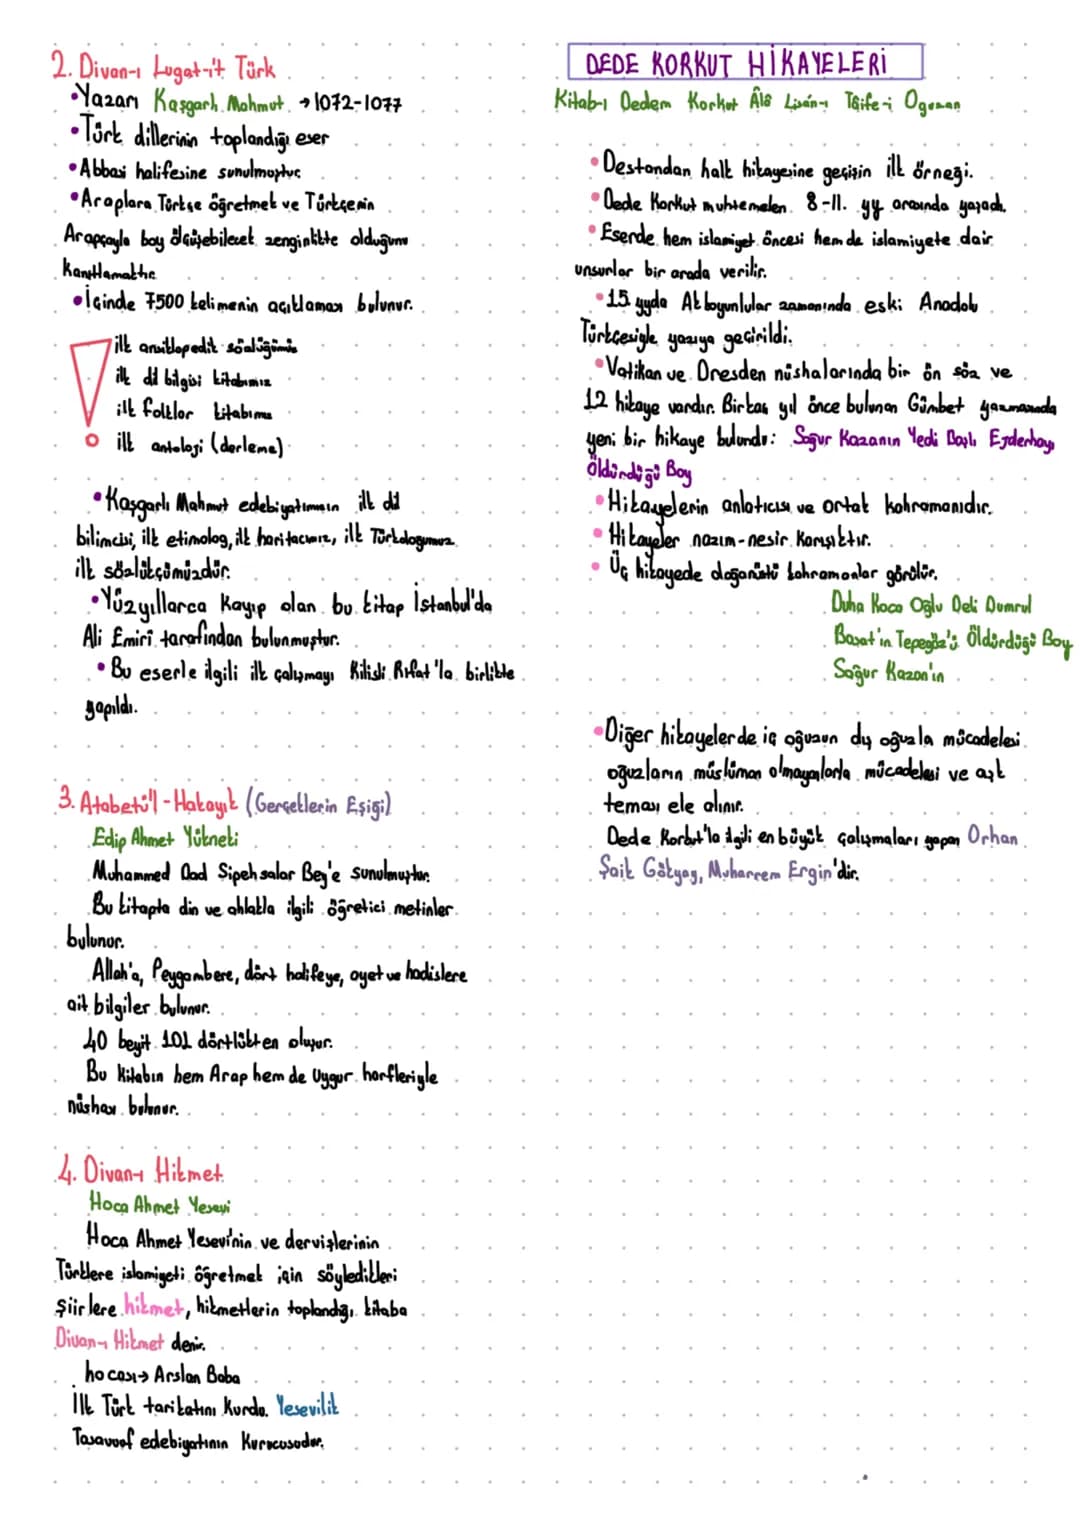 2. Divan-ı Lugat-it Türk
•Yazarı Kaşgarlı Mahmut → 1072-1077
•Türk dillerinin toplandığı eser
•Abbasi halifesine sunulmuştur.
•Araplara Türkçe öğretmek ve Türkçenin
Arapçayla boy ölçüşebilecek zenginlikte olduğunu
kanıtlamaktır.
•İçinde 7500 kelimenin açıklaması bulunur.
! ilk ansiklopedik sözlüğümüz
ilk dil bilgisi kitabımız
ilk folklor kitabımız
ilk antoloji (derleme)
•Kaşgarlı Mahmut edebiyatımızın ilk dil
bilimcisi, ilk etimolog, ilk haritacımız, ilk Türkoloğumuz
ilk sözlükçümüzdür.
•Yüzyıllarca kayıp olan bu kitap İstanbul'da
Ali Emirî tarafından bulunmuştur.
•Bu eserle ilgili ilk çalışmayı Kilisli Rıfat'la birlikte
yapıldı.
3. Atabetü'l-Hakayık (Gerçeklerin Eşiği)
Edip Ahmet Yükneki
Muhammed Dad Sipehsalar Bey'e sunulmuştur.
Bu kitapta din ve ahlakla ilgili öğretici metinler
bulunur.
Allah'a, Peygambere, dört halifeye, ayet ve hadislere
ait bilgiler bulunur.
40 beyit 101 dörtlükten oluşur.
Bu kitabın hem Arap hem de Uygur harfleriyle
nüshası bulunur.
4. Divan-ı Hikmet
Hoca Ahmet Yesevi
Hoca Ahmet Yesevi'nin ve dervişlerinin
Türklere islamiyeti öğretmek için söyledikleri
şiirlere hikmet, hikmetlerin toplandığı kitaba
Divan-ı Hikmet denir.
hocası→ Arslan Baba
İlk Türk tarikatını kurdu. Yesevilik
Tasavvuf edebiyatının kurucusudur.
DEDE KORKUT HİKAYELERİ
Kitab-ı Dedem Korkut Âlâ Lisân-ı Tâife-i Oguzan
•Destandan halk hikayesine geçişin ilk örneği.
•Dede Korkut muhtemelen 8-11. yy arasında yaşadı.
•Eserde hem islamiyet öncesi hem de islamiyete dair
unsurlar bir arada verilir.
•15. yyda Akkoyunlular zamanında eski Anadolu
Türkçesiyle yazıya geçirildi.
•Vatikan ve Dresden nüshalarında bir ön söz ve
12 hikaye vardır. Birkaç yıl önce bulunan Gümbet yazmasında
yeni bir hikaye bulundu: Salur Kazanın Yedi Başlı Ejderhayı
Öldürdüğü Boy
•Hikayelerin anlatıcısı ve ortak kahramanıdır.
•Hikayeler nazım-nesir karışıktır.
•Üç hikayede doğaüstü kahramanlar görülür.
Duha Koca Oğlu Deli Dumrul
Basat'ın Tepegöz'ü Öldürdüğü Boy
Salur Kazan'ın
•Diğer hikayelerde iç oğuzun dış oğuzla mücadelesi
oğuzların müslüman olmayanlarla mücadelesi ve aşk
teması ele alınır.
Dede Korkut'la ilgili en büyük çalışmaları yapan Orhan
Şaik Gökyay, Muharrem Ergin'dir.